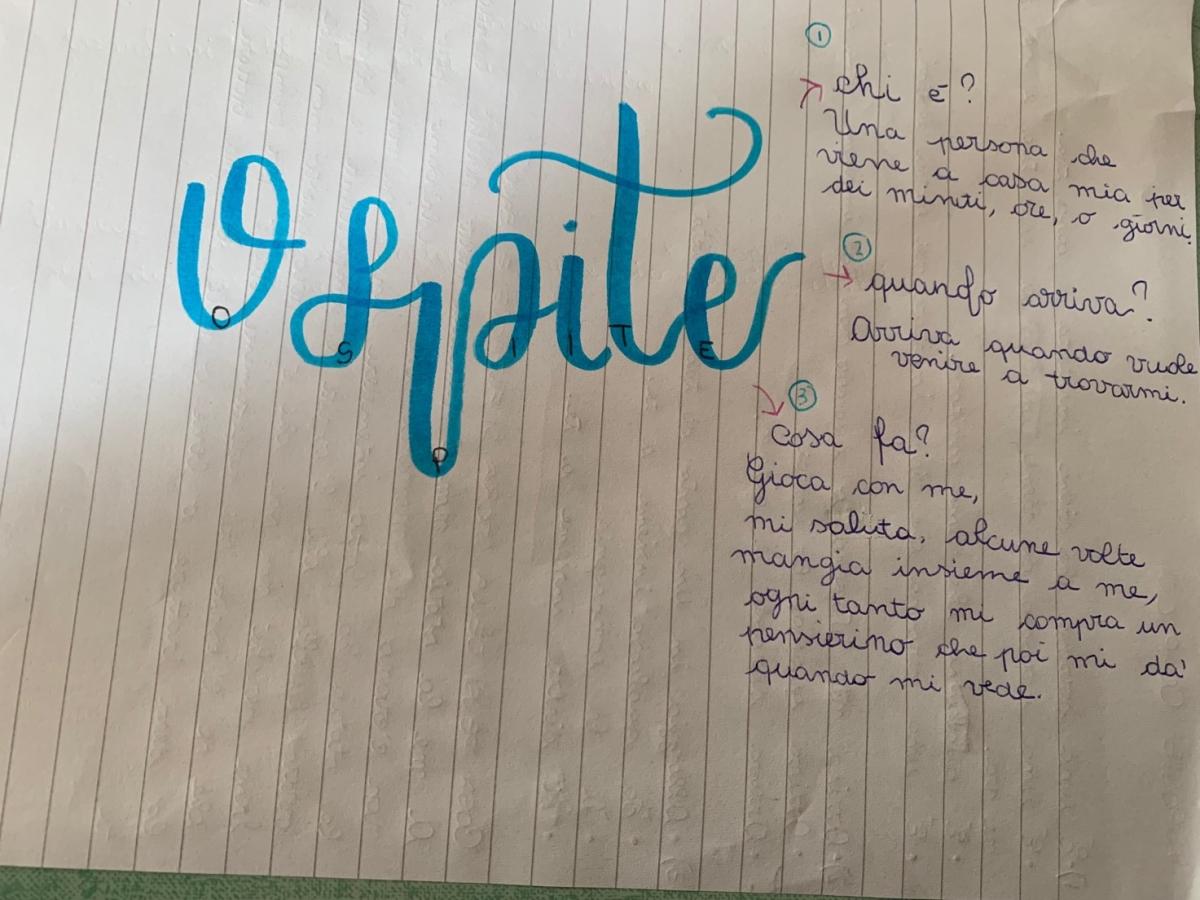 Ospite
O S P I I T E
1
chi è?
Una persona che
viene a casa mia per
dei minuti, ore, o giorni.
2
quando arriva?
Arriva quando vuole
venire a trovarmi.
3
Cosa fa?
Gioca con me,
mi saluta, alcune volte
mangia insieme a me,
ogni tanto mi compra un
pensierino che poi mi da'
quando mi vede.